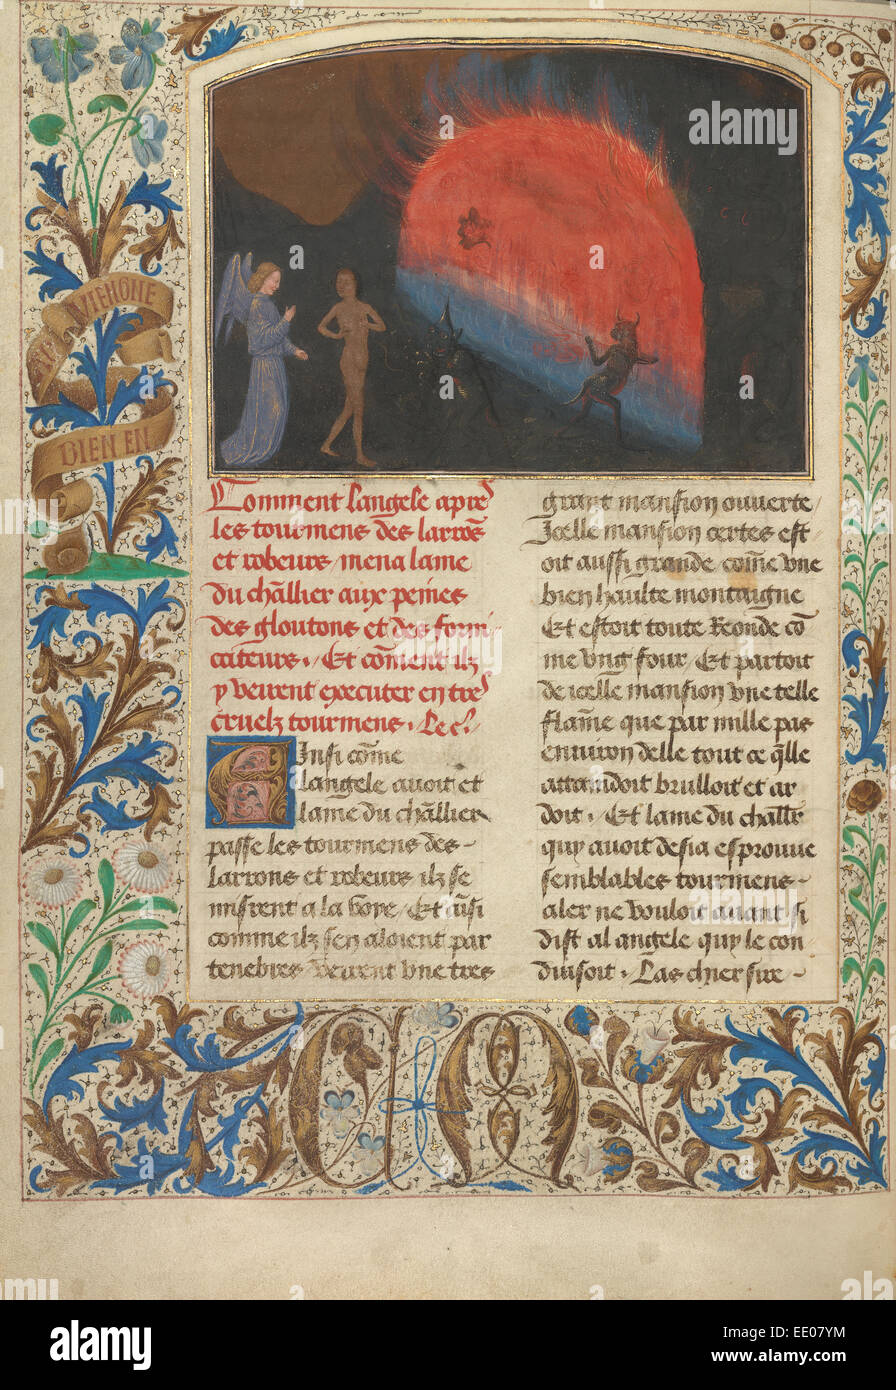 AVIENGNE
BIEN EN
Comment langele apres
les tourmens des larrōs
et robeurs / mena lame
du chāllier aux peines
des gloutons et des forni
cateurs . Et cōment ilz
y veirent executer en tres
cruelz tourmens . Le c
Ainsi cōme
langele avoit et
lame du chāllier
passe les tourmens des
larrons et robeurs ilz se
misrent a la voye / Et aīsi
comme ilz sen aloient par
tenebres / veirent une tres
grant mansion ouverte /
Icelle mansion certes est
oit aussi grande come une
bien haulte montaigne
Et estoit toute Reonde cō
me ung four / Et partoit
de icelle mansion une telle
flāme que par mille pas
environ delle tout ce q̄lle
attaindoit brulloit et ar
doit . Et lame du challr
quy avoit desia esprouve
semblables tourmens
aler ne vouloit avant si
dist al angele quy le con
duisoit . Las chier sire
alamy stock photo
EE07YM
www.alamy.com